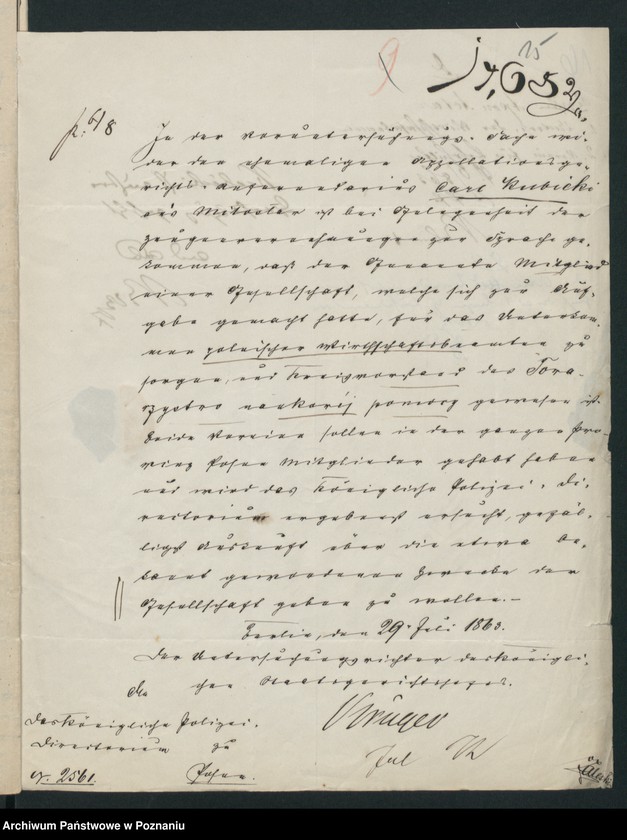 15
9
17,652
p. 6/8
In der Voruntersuchungs-Sache wi-
der den ehemaligen Appellationsge-
richts-Referendarius Carl Kubicki
aus Miloslaw ist bei Gelegenheit der
Zeugenvernehmungen zur Sprache ge-
kommen, daß der Genannte Mitglied
einer Gesellschaft, welche sich zur Auf-
gabe gemacht hatte, für das Unterkom-
men polnischer Wirthschaftsbeamten zu
sorgen, und Kreisvorstand des Towa-
rzystwo naukowej pomocy gewesen ist.
Beide Vereine sollen in der ganzen Pro-
vinz Posen Mitglieder gehabt haben
und wird das Königliche Polizei-Di-
rectorium ergebenst ersucht, gefäl-
ligst Auskunft über die etwa be-
kannt gewordenen Zwecke der
Gesellschaft geben zu wollen.-
Berlin, den 29. Juli 1863.
Der Untersuchungsrichter des Königli-
chen Staatsgerichtshofes.
An
das Königliche Polizei-
Directorium zu
Posen.
Krüger
N. 2561.
Archiwum Państwowe w Poznaniu